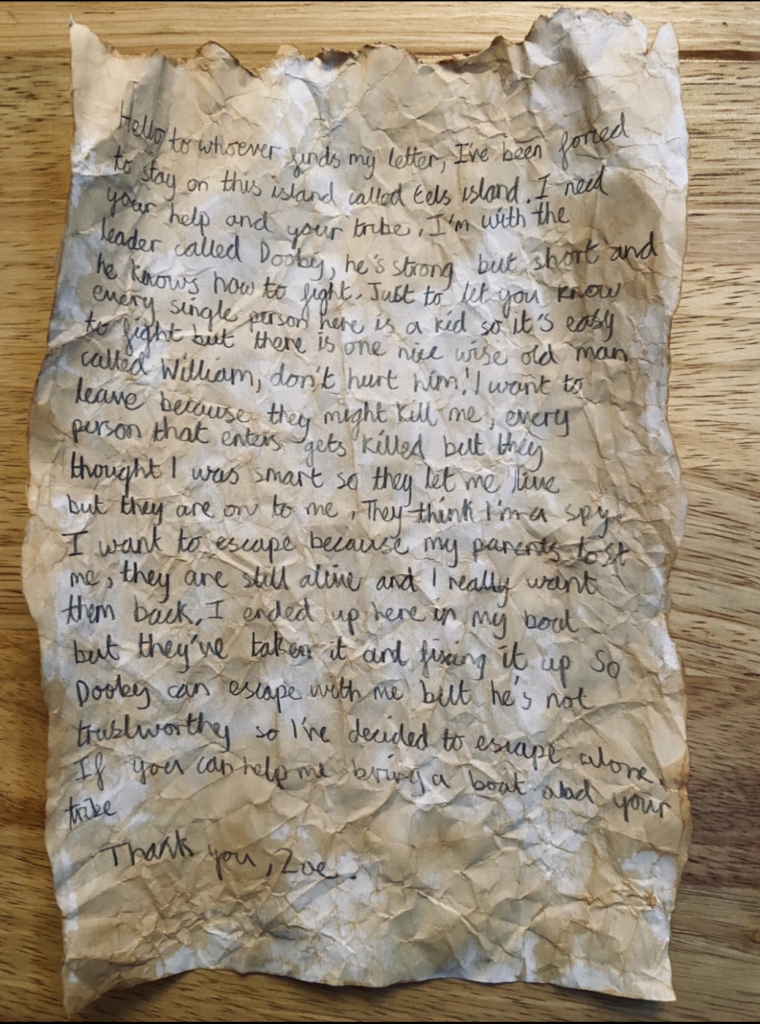 Hello to whoever finds my letter, I've been forced
to stay on this island called Eels island. I need
your help and your tribe. I'm with the
leader called Dooby, he's strong but short and
he knows how to fight. Just to let you know
every single person here is a kid so it's easy
to fight but there is one nice wise old man
called William, don't hurt him! I want to
leave because they might kill me, every
person that enters gets killed but they
thought I was smart so they let me live
but they are on to me. They think I'm a spy.
I want to escape because my parents lost
me, they are still alive and I really want
them back. I ended up here in my boat
but they've taken it and fixing it up so
Dooby can escape with me but he's not
trustworthy so I've decided to escape alone.
If you can help me bring a boat abd your
tribe
Thank you, Zoe.